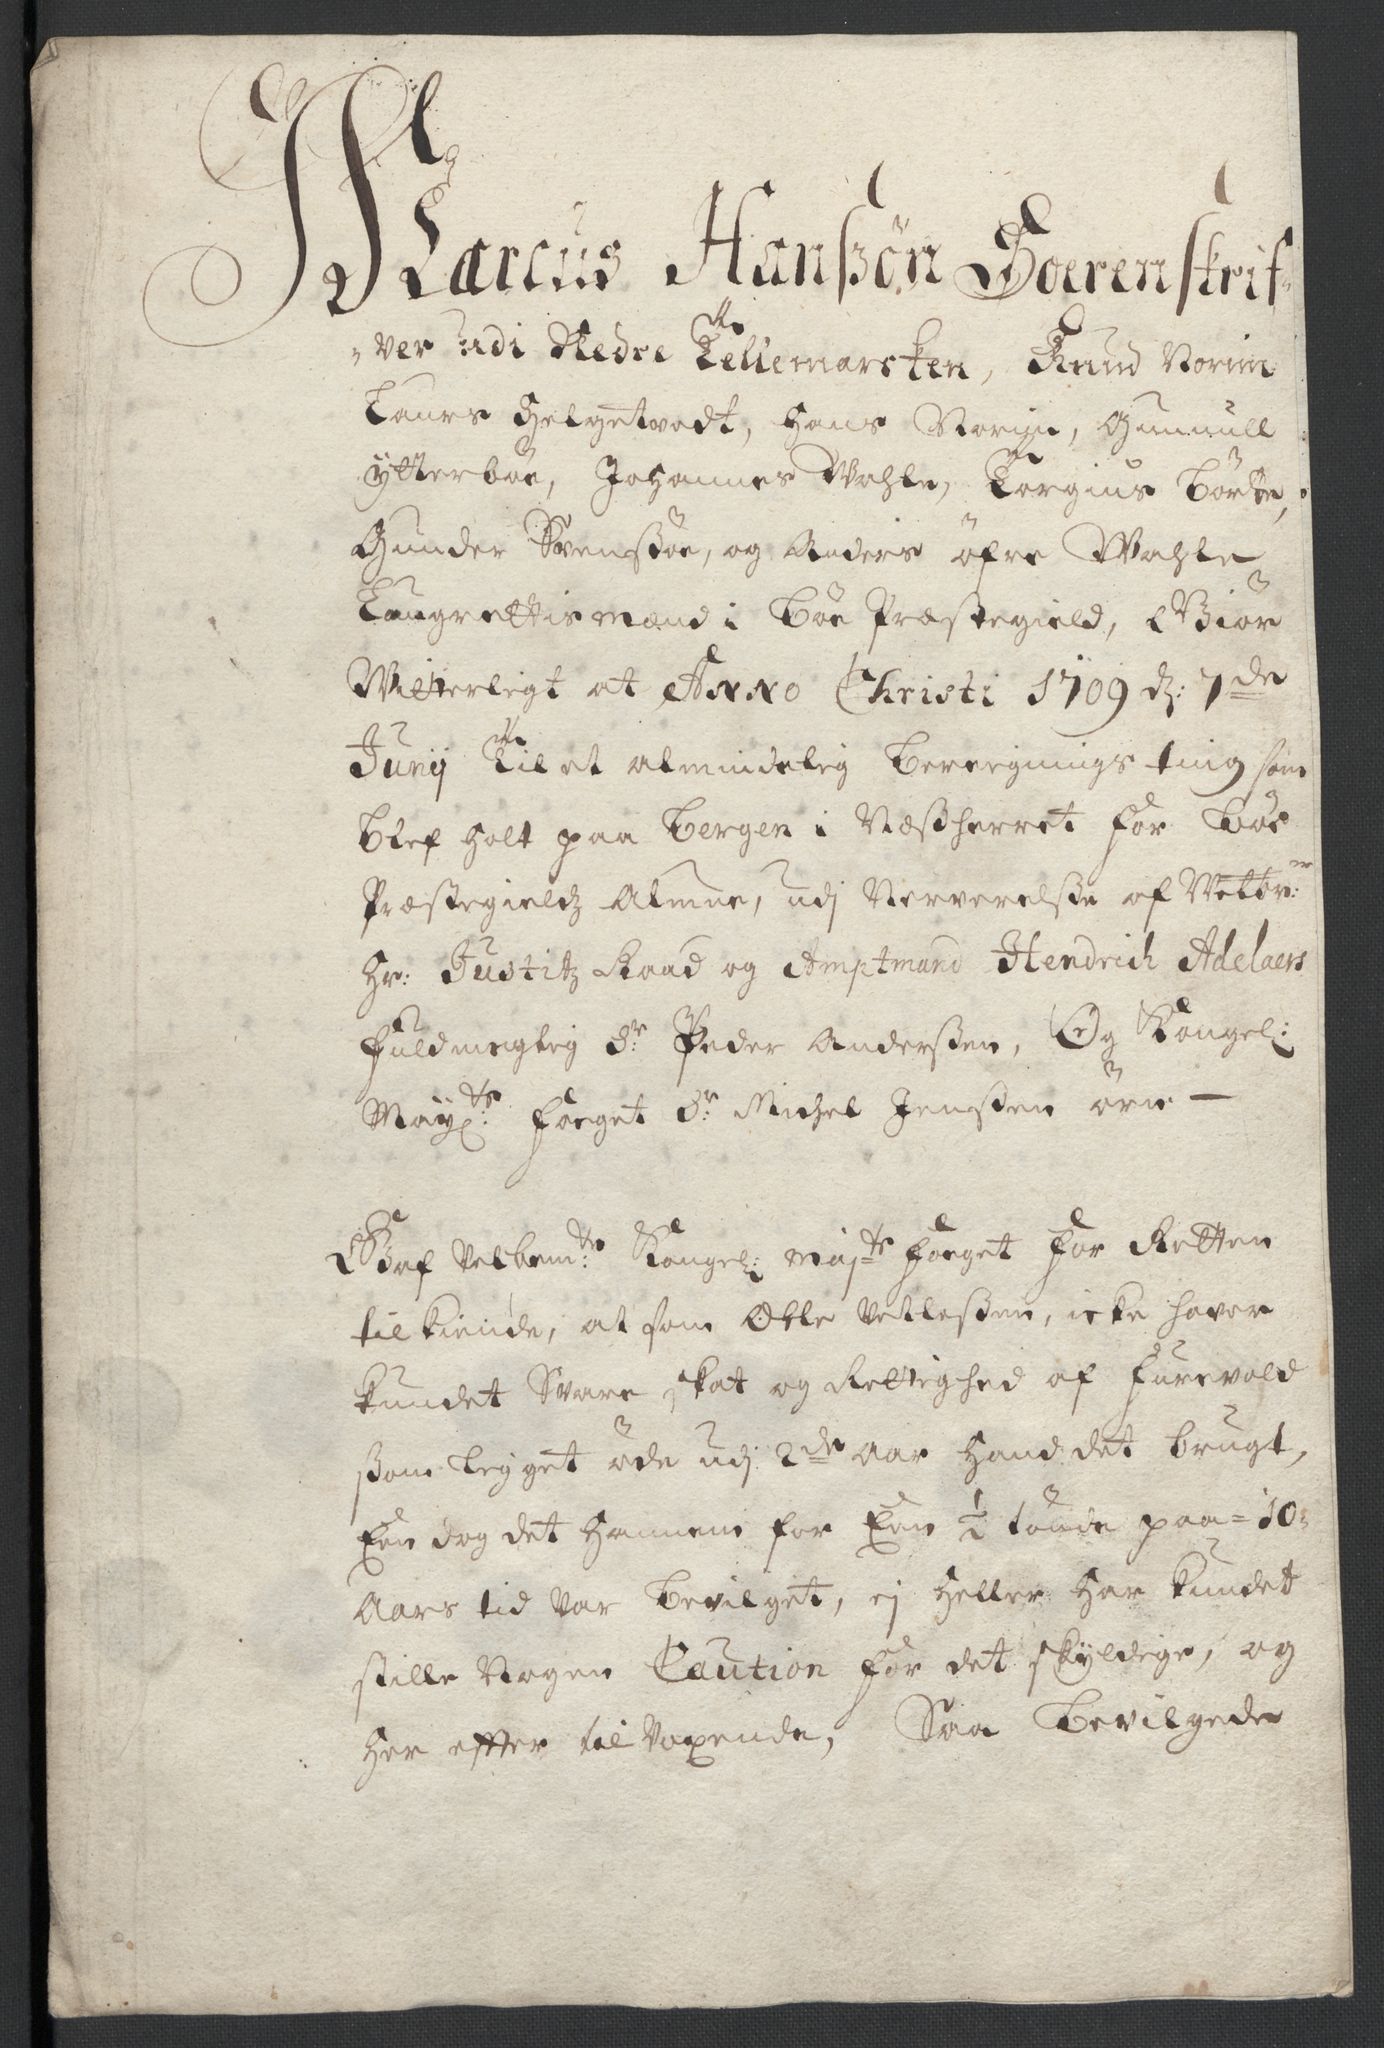 Marcus Hanßøn Soerenskrif-
-ver udi Nedre Tellemarcken, Knud Norim
Laurs Helgetvedt, Hans Norim, Gunnull
ÿtterbøe, Johannes Wahle, Torgius børte,
Gunder Svenßøe, og Anders öfre Wahle
Laugrettismænd i Bøe Præstegield, Giör
Witterligt at Anno Christi 1709 d: 7de
Junij Til et almindelig bereignings ting som
blef holt paa Bergen i Næßherret for Bøe
Præstegieldz Almue, udj Nerverelße af Velbr:
Hr: Justitz Raad og Amptmand Hendrich Adelaers
fuldmegtig Sr: Peder Anderßen, Og Kongel:
Mayts: foeget Sr: Michel Jenßen örn —
Gaf Velbemte: Kongel: Majts foeget for Retten
tilkiende, at som Olle Vetleßen, icke haver
kundet Svare skat og Rettighed af furevald
ßom legget øde udj 2de Aar hand det brugt,
Endog det hannem for En ½ tønde paa 10
Aars tid var bevilget, ej heller har kundet
stille Nogen Caution for det skyldige, og
her effter tilvoxende, Saa bevilgede